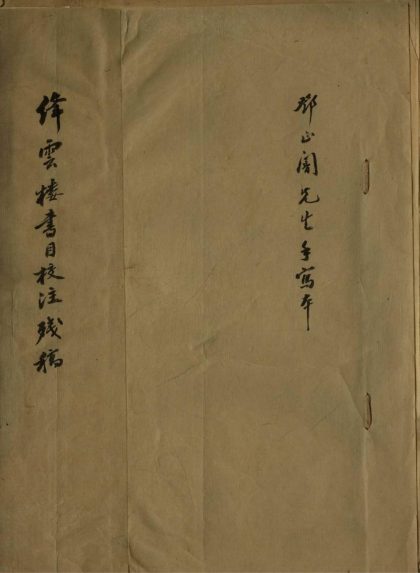 鄧正闇先生手寫本
絳雲樓書目校注殘稿